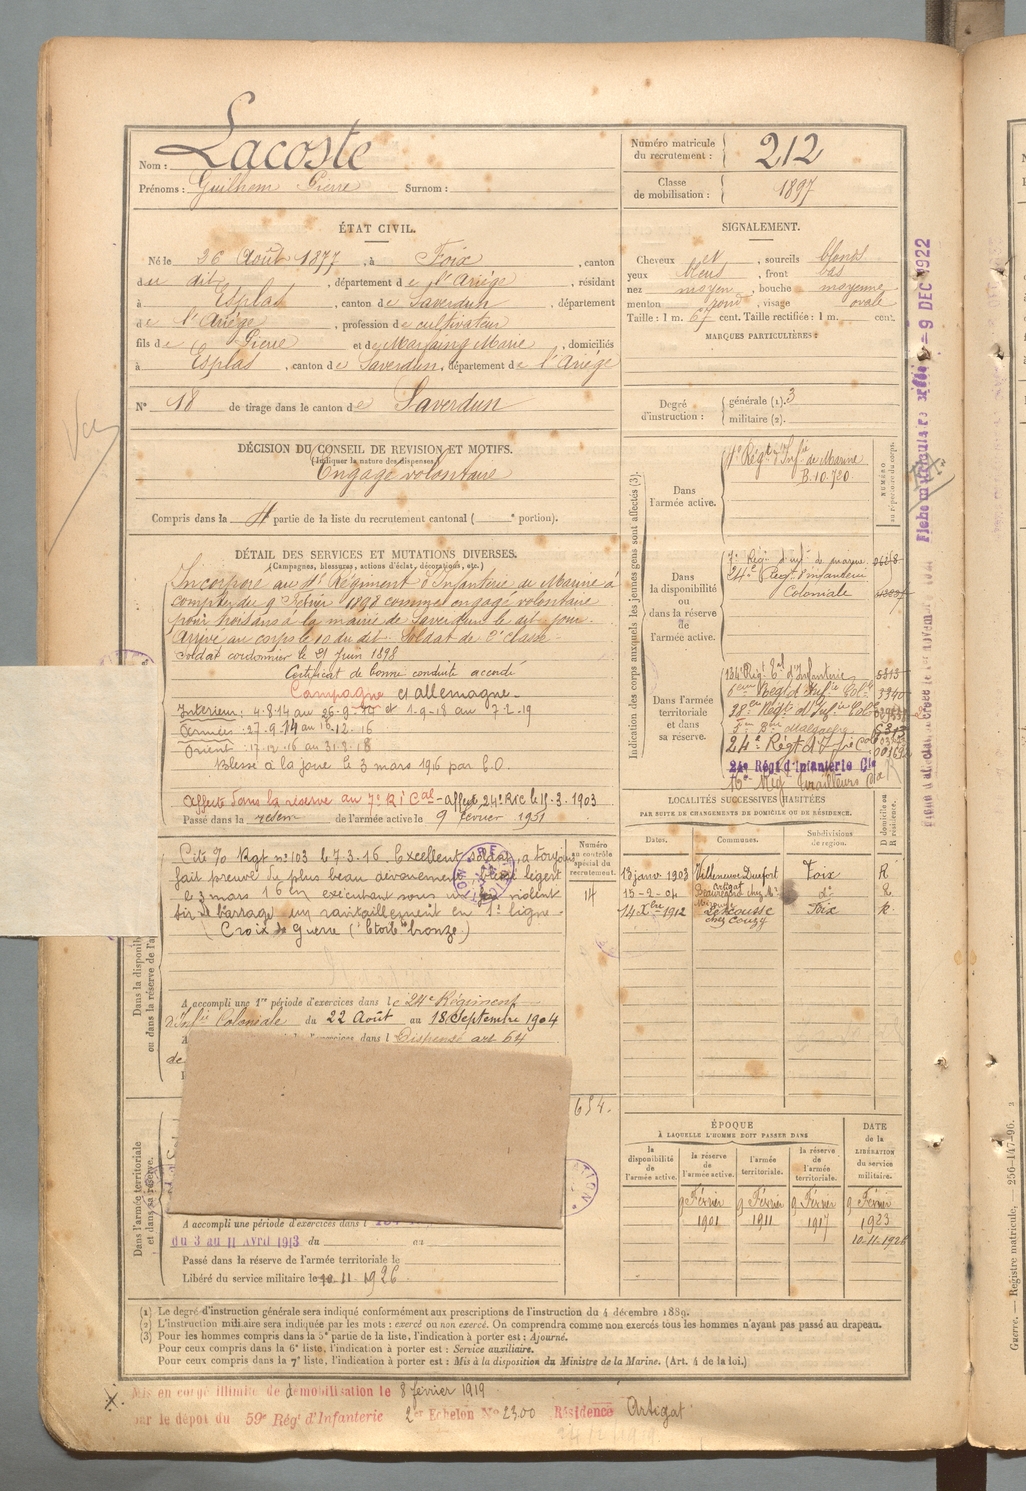 Nom : Lacoste
Prénoms : Guilhem Pierre Surnom :
Numéro matricule du recrutement : 212
Classe de mobilisation : 1897
ÉTAT CIVIL.
Né le 26 Août 1877, à Foix, canton
du dit, département de l'Ariége, résidant
à Esplas, canton de Saverdun, département
de l'Ariége, profession de cultivateur
fils de Pierre et de Marfaing Marie, domiciliés
à Esplas, canton de Saverdun, département de l'Ariége
N° 18 de tirage dans le canton de Saverdun
SIGNALEMENT.
Cheveux et, sourcils blonds
yeux bleus, front bas
nez moyen, bouche moyenne
menton rond, visage ovale
Taille : 1 m. 67 cent. Taille rectifiée : 1 m. cent.
MARQUES PARTICULIÈRES :
Degré d'instruction : générale (1). 3
militaire (2).
DÉCISION DU CONSEIL DE REVISION ET MOTIFS.
(Indiquer la nature des dispenses.)
Engagé volontaire
Compris dans la 4e partie de la liste du recrutement cantonal ( e portion).
DÉTAIL DES SERVICES ET MUTATIONS DIVERSES.
(Campagnes, blessures, actions d'éclat, décorations, etc.)
Incorporé au Régiment d'Infanterie de Marine à
compter du 9 Février 1898 comme engagé volontaire
pour trois ans à la mairie de Saverdun le dit jour.
Arrivé au corps le 10 du dit. Soldat de 2e classe
Soldat cordonnier le 21 juin 1898
Certificat de bonne conduite accordé
Campagne c/ allemagne
Intérieur : 4-8-14 au 26-9-14 et 1-9-18 au 7-2-19
Armées : 27-9-14 au 16-12-16
Orient : 17-12-16 au 31-8-18
Blessé à la joue le 3 mars 1916 par E.O.
Affecté dans la réserve au 7e R I Cal - affecté 24e RIC le 15-3-1903
Passé dans la réserve de l'armée active le 9 février 1901
Numéro au contrôle spécial du recrutement.
14
Cité o/o Rgt n° 103 le 7-3-16. Excellent soldat, a toujours
fait preuve du plus beau dévouement. Blessé légert
le 3 mars 16 en exécutant sous un violent
tir de barrage un ravitaillement en 1e ligne
(Croix de Guerre (Etoile bronze.)
A accompli une 1re période d'exercices dans le 24e Régiment
d'Infie Coloniale du 22 Août au 18 Septembre 1904
Dispensé art 64
654.
A accompli une période d'exercices dans l
du 3 au 11 Avril 1913 du au
Passé dans la réserve de l'armée territoriale le
Libéré du service militaire le 10-11-1926
Indication des corps auxquels les jeunes gens sont affectés (3).
Dans l'armée active.
Régt d'Infie de Marine
B. 10.720
NUMÉRO au répertoire du corps.
Dans la disponibilité ou dans la réserve de l'armée active.
7e Régt d'infie de marine
24e Régt d'infanterie
Coloniale
Dans l'armée territoriale et dans sa réserve.
134e Régt Eal d'Infanterie 5313
Regt d'Infie Colle
38em Régt d'Infie Colle
24e Régt d'Infie Col
24e Rég d'Infanterie Cle
Tirailleurs
LOCALITÉS SUCCESSIVES HABITÉES
PAR SUITE DE CHANGEMENTS DE DOMICILE OU DE RÉSIDENCE.
Dates. Communes. Subdivisions de région. D domicile ou R résidence.
13 janv 1903 Villeneuve Durfort Foix R
15-2-04 Artigat d° R
14 Xbre 1912 chez Couzy Foix R
ÉPOQUE
À LAQUELLE L'HOMME DOIT PASSER DANS
la disponibilité de l'armée active.
la réserve de l'armée active.
l'armée territoriale.
la réserve de l'armée territoriale.
DATE de la LIBÉRATION du service militaire.
9 Février 1901
9 Février 1911
9 Février 1917
9 Février 1923
10-11-1926
(1) Le degré d'instruction générale sera indiqué conformément aux prescriptions de l'instruction du 4 décembre 1889.
(2) L'instruction militaire sera indiquée par les mots : exercé ou non exercé. On comprendra comme non exercés tous les hommes n'ayant pas passé au drapeau.
(3) Pour les hommes compris dans la 5e partie de la liste, l'indication à porter est : Ajourné.
Pour ceux compris dans la 6e liste, l'indication à porter est : Service auxiliaire.
Pour ceux compris dans la 7e liste, l'indication à porter est : Mis à la disposition du Ministre de la Marine. (Art. 4 de la loi.)
Mis en congé illimité de démobilisation le 8 février 1919
par le dépôt du 59e Rég' d'Infanterie 2e Echelon N° 2300 Résidence Artigat
- 9 DEC 1922
Guerre. — Registre matricule. — 256-147-96.